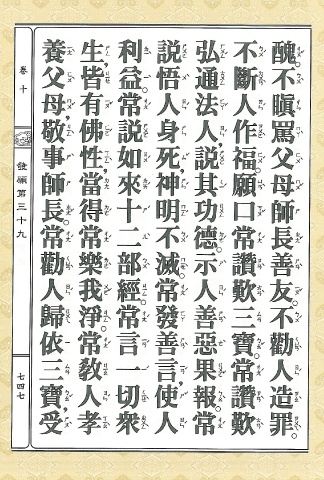 醜。不瞋罵父母師長善友。不勸人造罪。
不斷人作福。願口常讚歎三寶。常讚歎
弘通法人，說其功德。示人善惡果報。常
說悟人身死，神明不滅。常發善言，使人
利益。常說如來十二部經。常言一切眾
生皆有佛性，當得常樂我淨。常教人孝
養父母，敬事師長。常勸人歸依三寶，受
卷十
發願第三十九
七四七